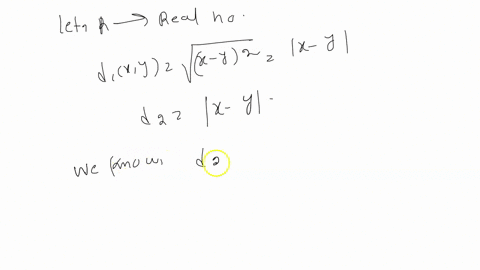 let, R → Real no.
d₁(x,y) = √(x-y)² = |x-y|
d₂ = |x-y|.
We know, d₂